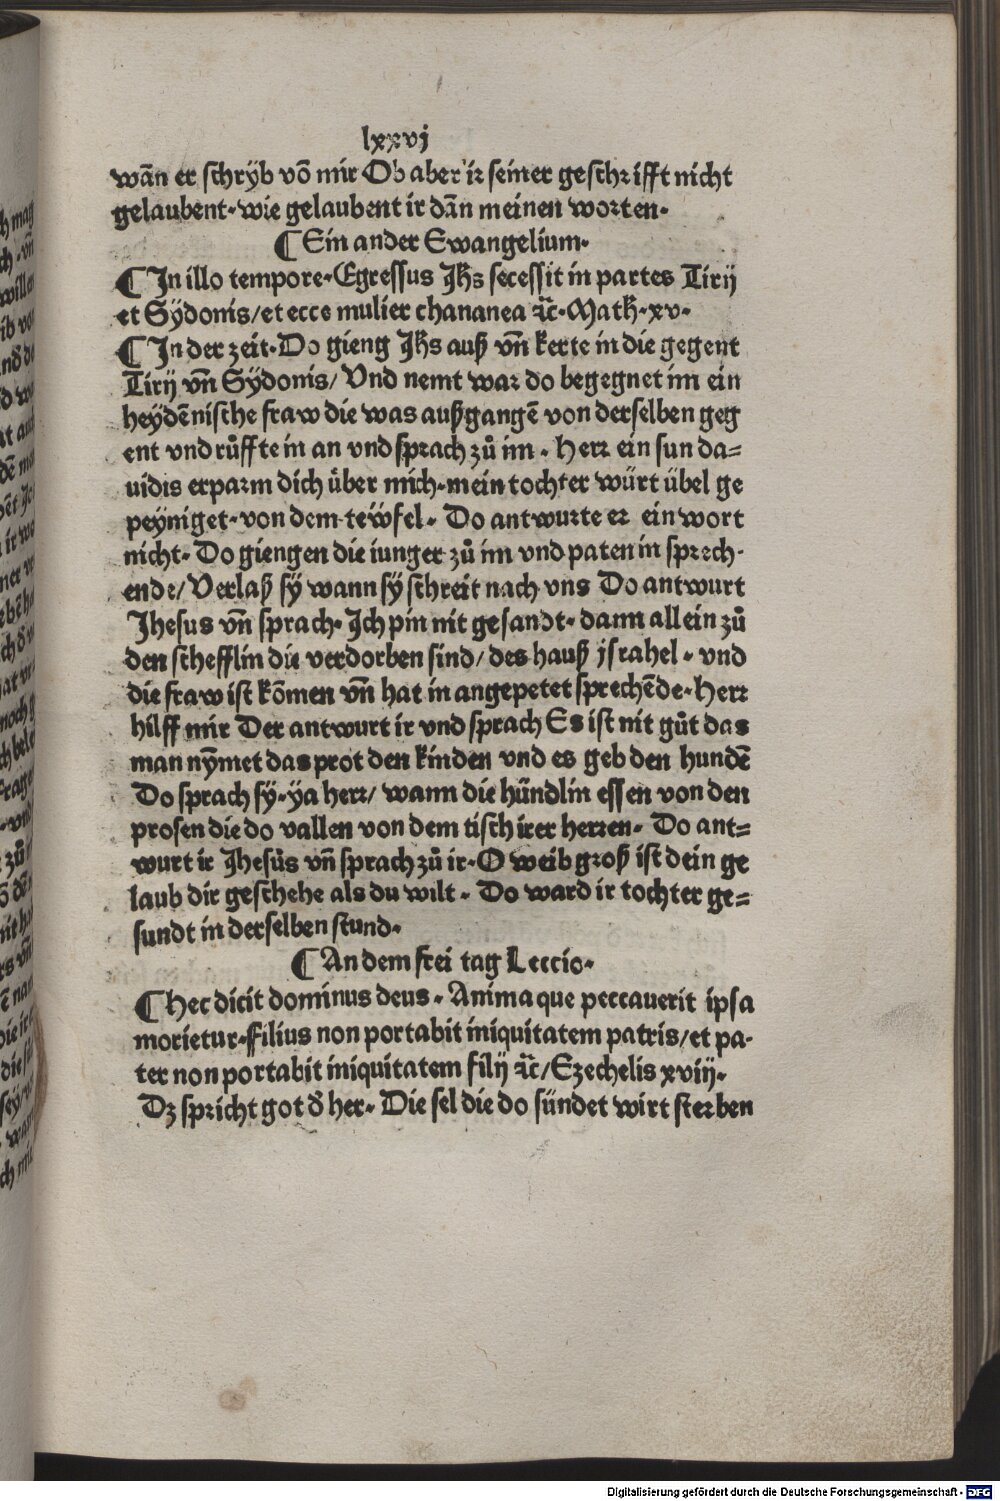 lxxvj
wañ er schrÿb võ mir Ob aber ir seiner geschrifft nicht
gelaubent·wie gelaubent ir dañ meinen worten·
¶ Ein ander Ewangelium·
¶ In illo tempore·Egressus Jh̃s secessit in partes Tirÿ
et Sÿdonis/et ecce mulier chananea ⁊c̃·Math·xv·
¶ In der zeit·Do gieng Jh̃s auß vñ kerte in die gegent
Tirÿ vñ Sÿdonis/ Vnd nemt war do begegnet im ein
heydẽnische fraw die was außgangẽ von derselben geg
ent vnd růffte in an vnd sprach zů im · Herr ein sun da=
uidis erparm dich über mich·mein tochter würt übel ge
peyniget·von dem tewfel· Do antwurte er ein wort
nicht· Do giengen die iunger zů im vnd paten in sprech·
ende/ Verlaß sÿ wann sÿ schreit nach vns Do antwurt
Jhesus vñ sprach· Ich pin nit gesandt· dann allein zů
den schefflin die verdorben sind/ des hauß jsrahel· vnd
die fraw ist kõmen vñ hat in angepetet sprechẽde·Herr
hilff mir Der antwurt ir vnd sprach Es ist nit gůt das
man nÿmet das prot den kinden vnd es geb den hundẽ
Do sprach sÿ·ya herr/ wann die hündlin essen von den
prosen die do vallen von dem tisch irer herren· Do ant=
wurt ir Jhesůs vñ sprach zů ir·O weib groß ist dein ge
laub dir geschehe als du wilt· Do ward ir tochter ge=
sundt in derselben stund·
¶ An dem frei tag Leccio·
¶ Hec dicit dominus deus· Anima que peccauerit ipsa
morietur·Filius non portabit iniquitatem patris/et pa·
ter non portabit iniquitatem filÿ ⁊c̃/Ezechelis xviÿ·
Dz spricht got d̾ her· Die sel die do sündet wirt sterben
Digitalisierung gefördert durch die Deutsche Forschungsgemeinschaft - DFG